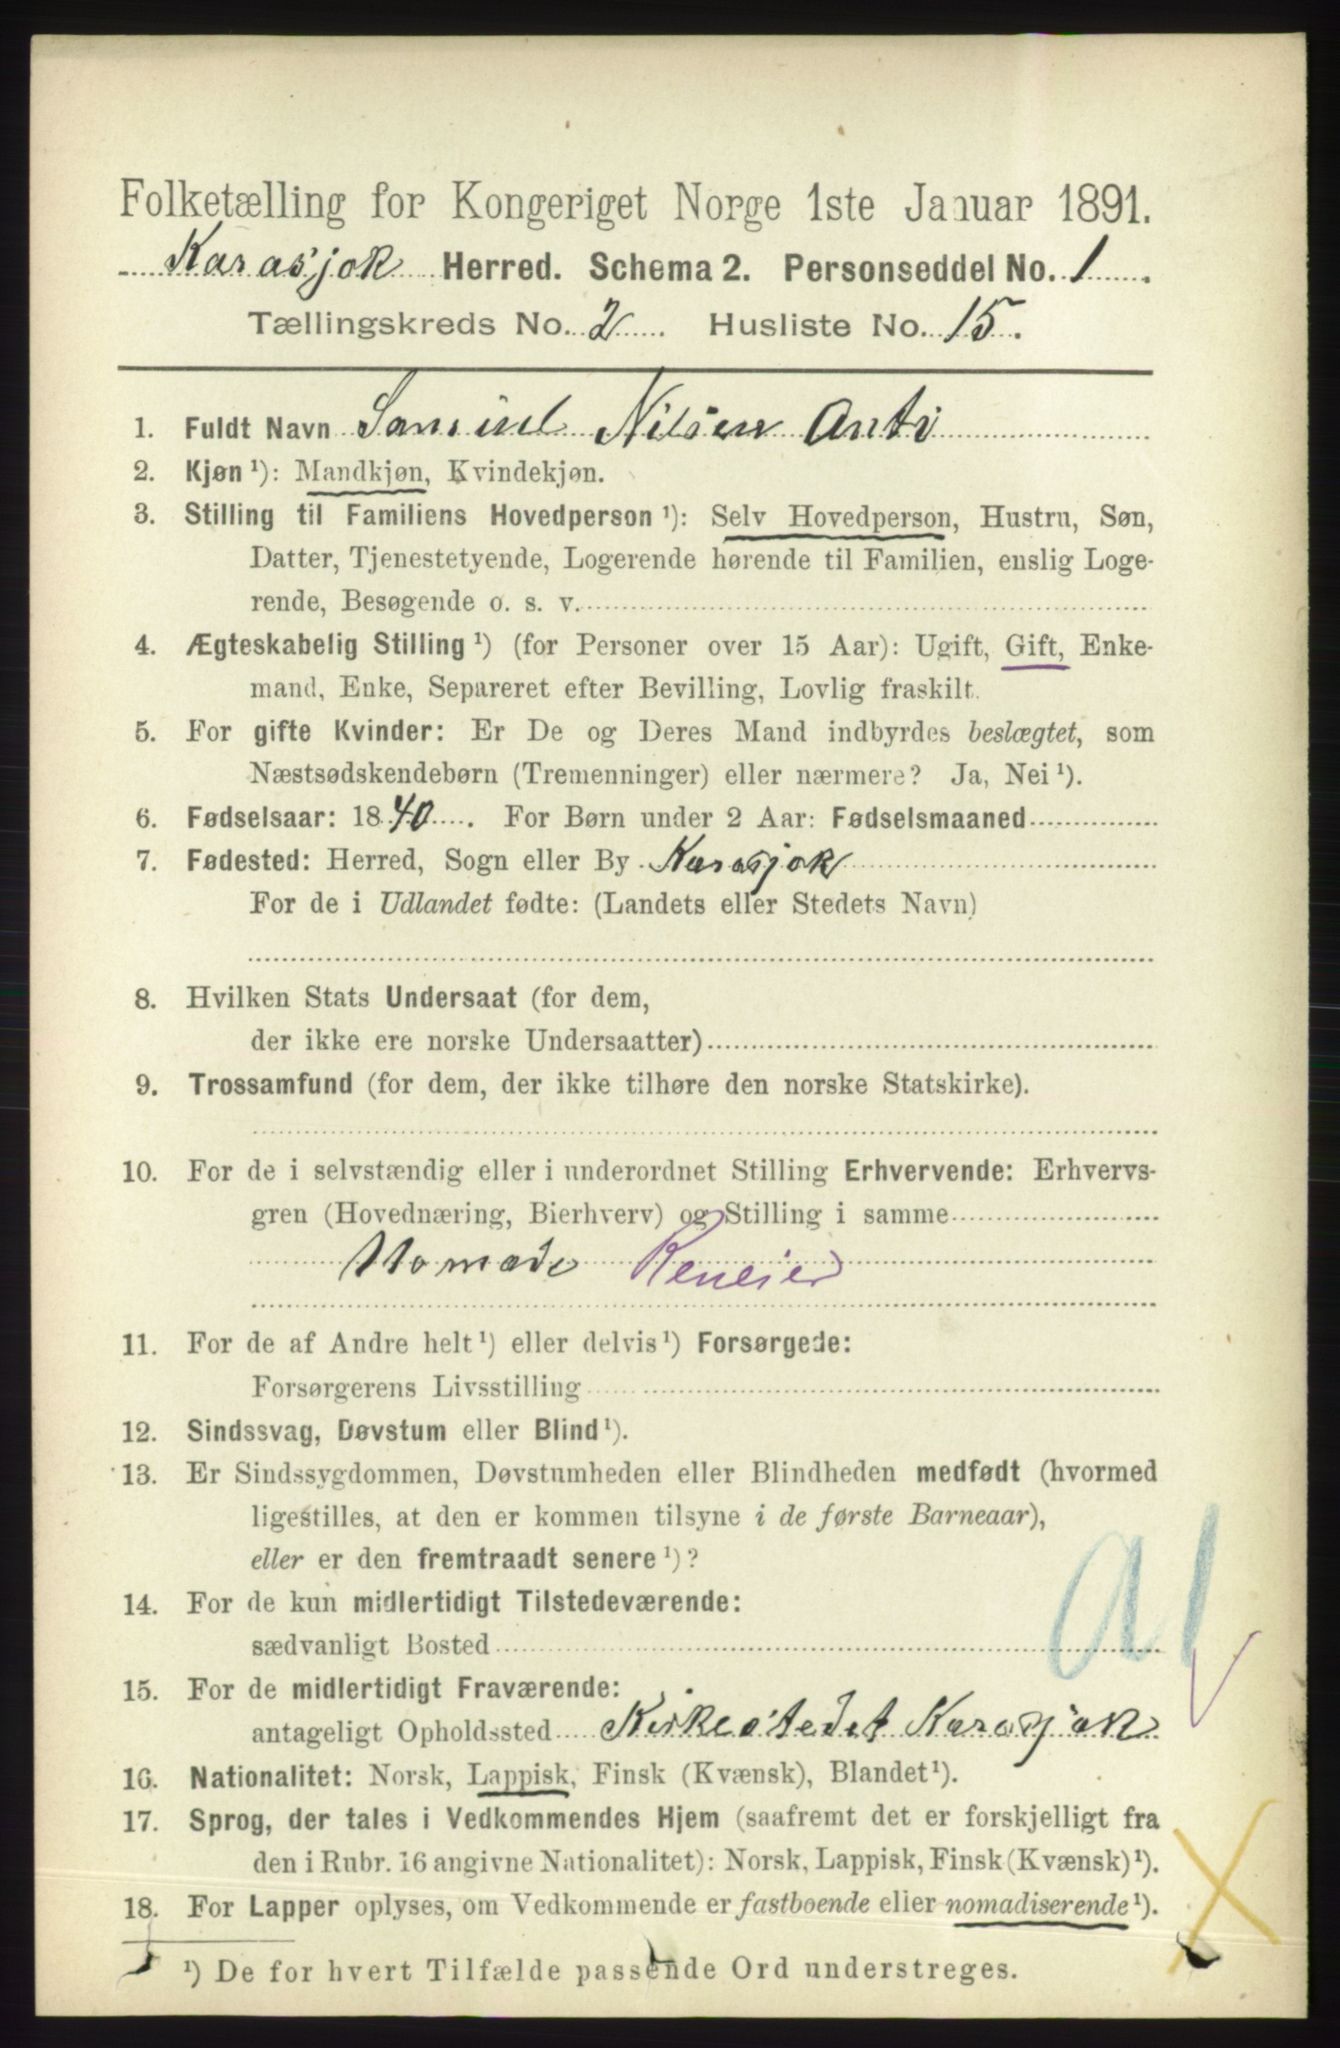 Folketælling for Kongeriget Norge 1ste Januar 1891.
Karasjok Herred. Schema 2. Personseddel No. 1.
Tællingskreds No. 2 Husliste No. 15.
1. Fuldt Navn Samuel Nilsen Anti
2. Kjøn ¹): Mandkjøn, Kvindekjøn.
3. Stilling til Familiens Hovedperson ¹): Selv Hovedperson, Hustru, Søn,
Datter, Tjenestetyende, Logerende hørende til Familien, enslig Loge-
rende, Besøgende o. s. v.
4. Ægteskabelig Stilling ¹) (for Personer over 15 Aar): Ugift, Gift, Enke-
mand, Enke, Separeret efter Bevilling, Lovlig fraskilt.
5. For gifte Kvinder: Er De og Deres Mand indbyrdes beslægtet, som
Næstsødskendebørn (Tremenninger) eller nærmere? Ja, Nei ¹).
6. Fødselsaar: 1840. For Børn under 2 Aar: Fødselsmaaned
7. Fødested: Herred, Sogn eller By Karasjok
For de i Udlandet fødte: (Landets eller Stedets Navn)
8. Hvilken Stats Undersaat (for dem,
der ikke ere norske Undersaatter)
9. Trossamfund (for dem, der ikke tilhøre den norske Statskirke).
10. For de i selvstændig eller i underordnet Stilling Erhvervende: Erhvervs-
gren (Hovednæring, Bierhverv) og Stilling i samme
Nomade Reneier
11. For de af Andre helt ¹) eller delvis ¹) Forsørgede:
Forsørgerens Livsstilling
12. Sindssvag, Døvstum eller Blind ¹).
13. Er Sindssygdommen, Døvstumheden eller Blindheden medfødt (hvormed
ligestilles, at den er kommen tilsyne i de første Barneaar),
eller er den fremtraadt senere ¹)?
14. For de kun midlertidigt Tilstedeværende:
sædvanligt Bosted
a1
15. For de midlertidigt Fraværende:
antageligt Opholdssted Kirkestedet Karasjok
16. Nationalitet: Norsk, Lappisk, Finsk (Kvænsk), Blandet ¹).
17. Sprog, der tales i Vedkommendes Hjem (saafremt det er forskjelligt fra
den i Rubr. 16 angivne Nationalitet): Norsk, Lappisk, Finsk (Kvænsk) ¹).
18. For Lapper oplyses, om Vedkommende er fastboende eller nomadiserende ¹).
¹) De for hvert Tilfælde passende Ord understreges.